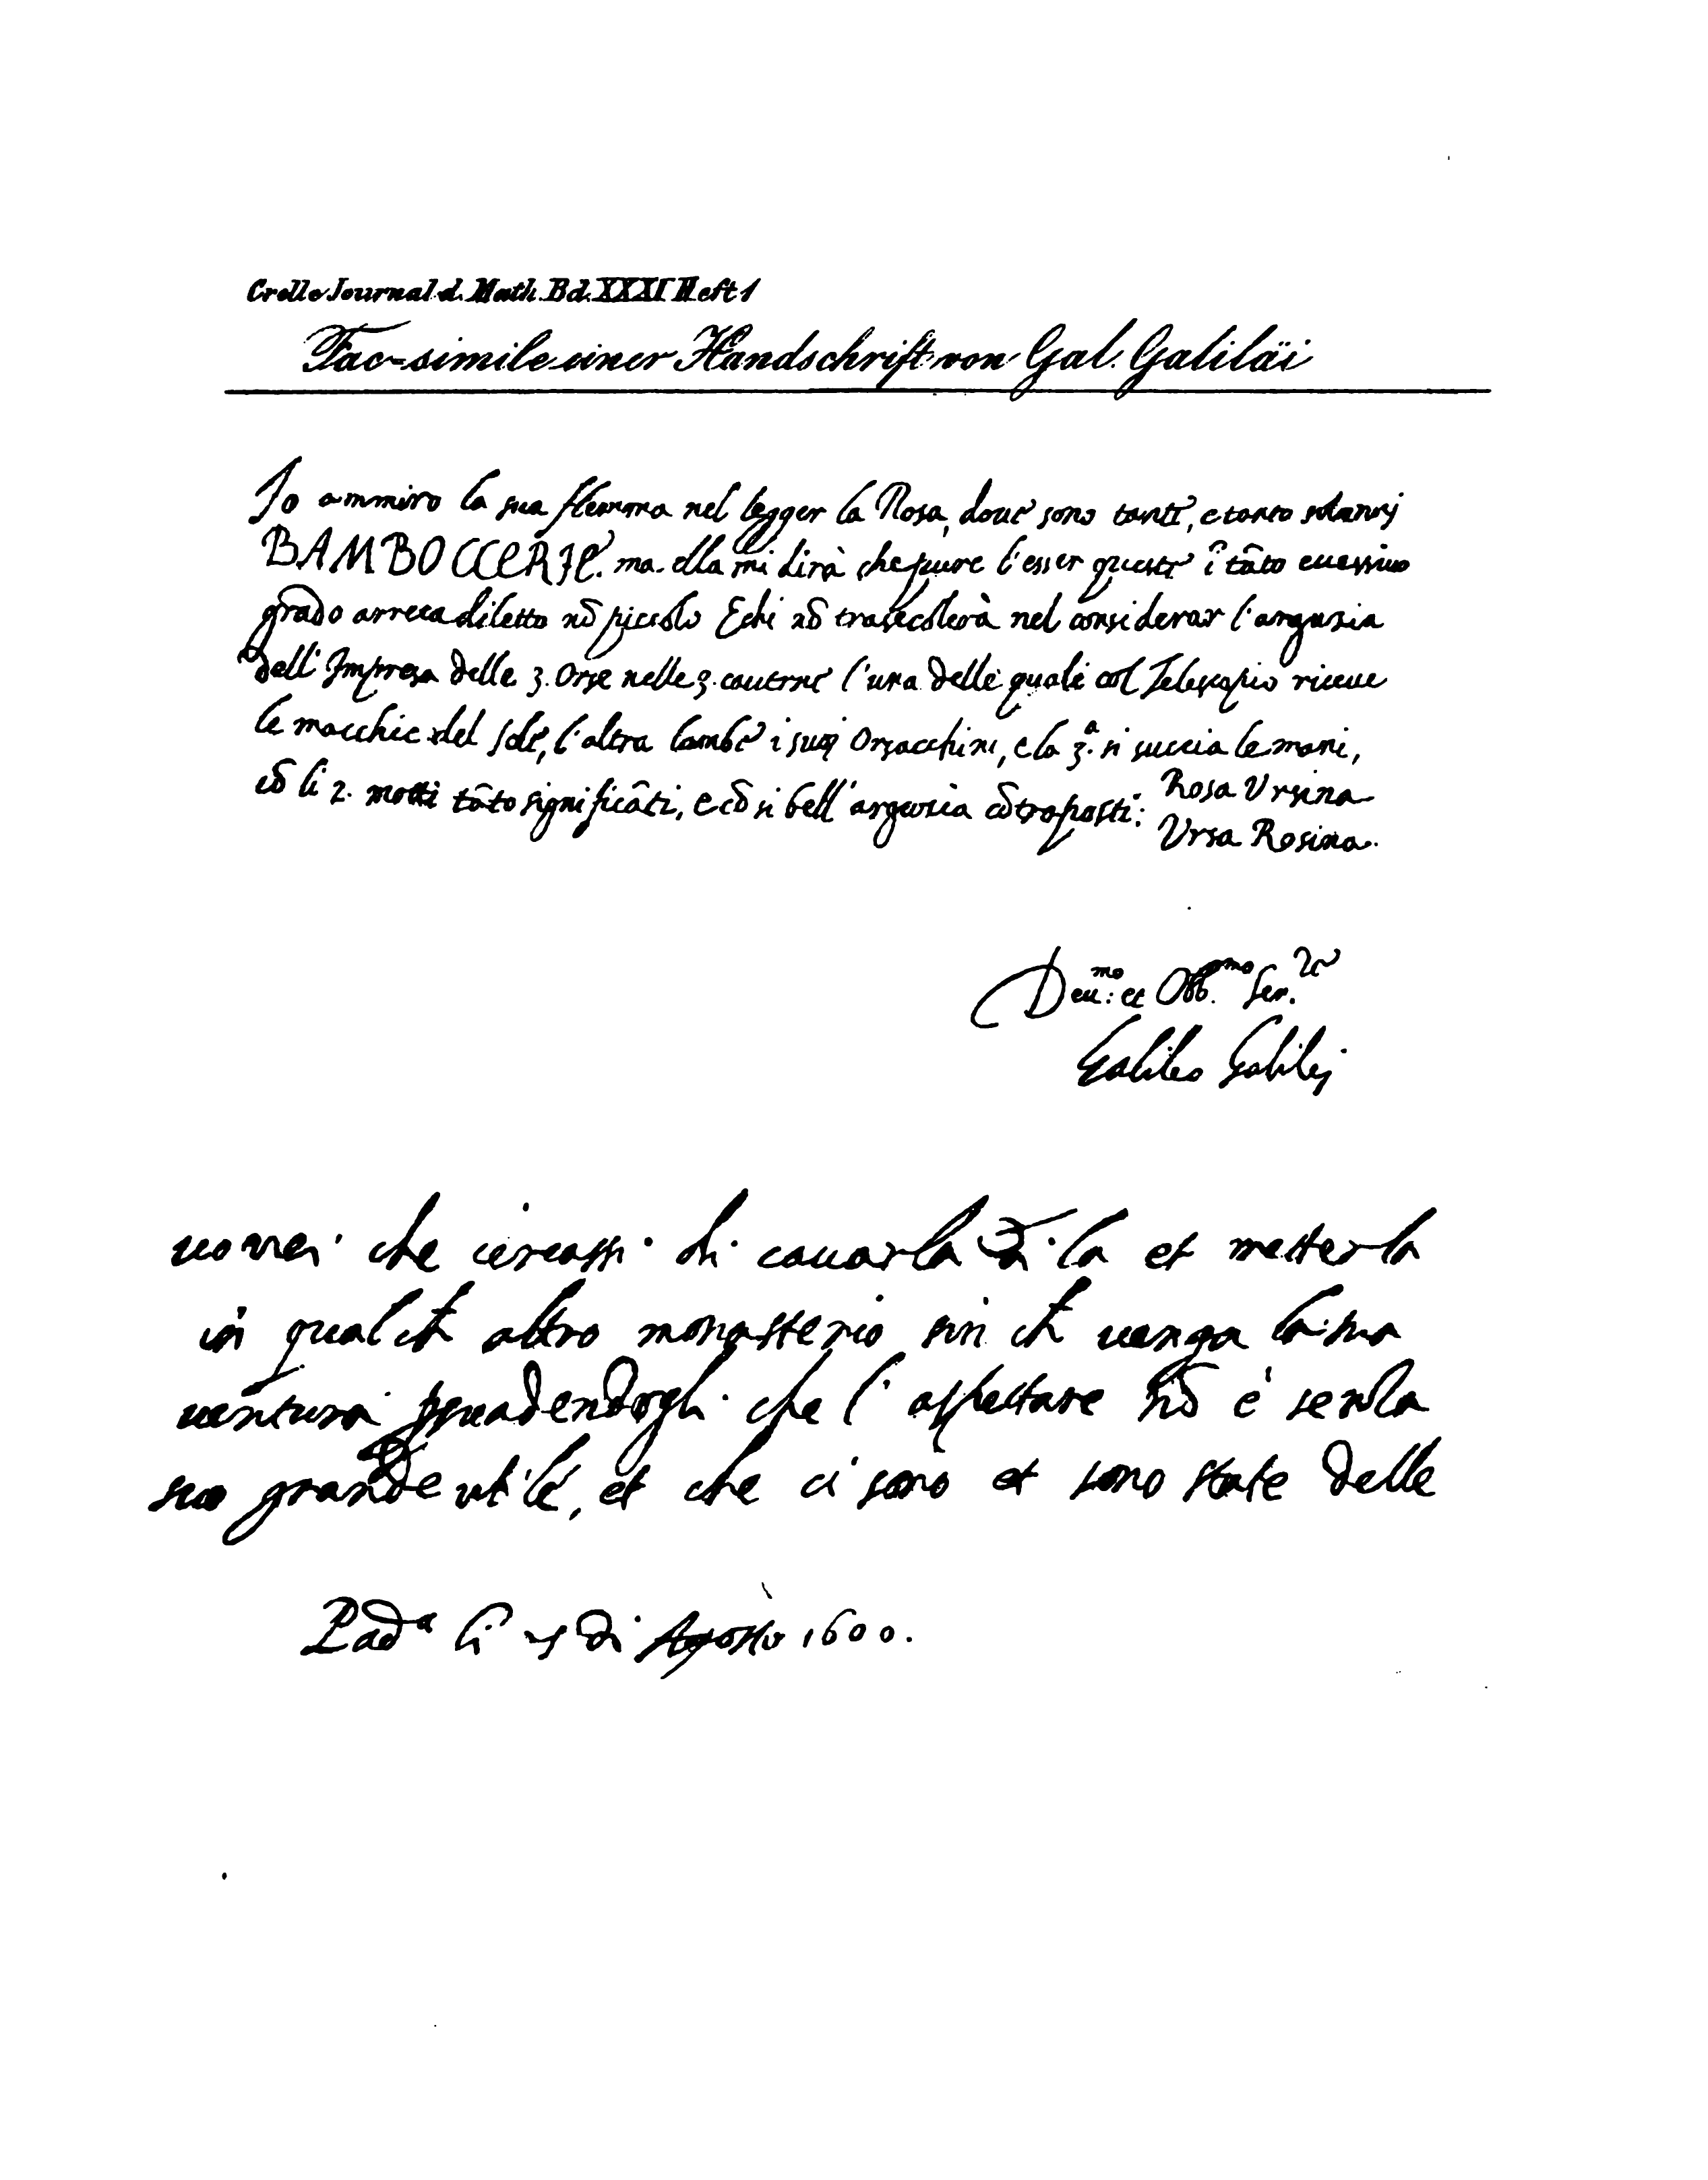 Crelle Journal d. Math. Bd. XXXI Heft 1
Fac-simile einer Handschrift von Gal. Galiläi
Io ammiro la sua flemma nel legger la Rosa, doue sono tanti, e tanto solenni
BAMBOCCERIE. ma ella mi dirà che pure l'esser queste ĩ tãto excessiuo
grado arreca diletto nõ piccolo E chi nõ trasecolerà nel considerar l'arguzia
dell'Impresa delle 3. Orse nelle 3. cauerne l'una delle quali col Telescopio riceue
le macchie del Sole, l'altra lambe i suoi Orsacchini, e la 3.ª si succia le mani,
cõ li 2. motti tãto significãti, e cõ si bell'arguzia cõtraposti: Rosa Vrsina
Vrsa Rosina.
Deu.mo: et Obb.mo Ser.re
Galileo Galilej
uorrei che cercassi di cauarla di la et metterla
in qualch altro monasterio sin ch uenga la sua
uentura psuadendogli che l'aspettare nõ è senza
suo grande utile, et che ci sono et sono state delle
Pad.a li di Agosto 1600.